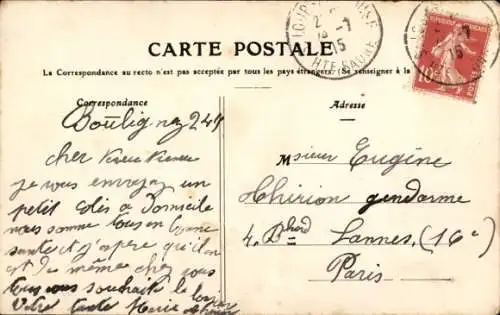 CARTE POSTALE
La Correspondance au recto n'est pas acceptée par tous les pays étrangers. (Se renseigner à la
Correspondance
Adresse
cher
je vous envoyaz un
petit Colis a Domicile
nous somme tous en bonne
sante et j'espre qu'il en
est du même chez vous
tous vous souhait le
Votre tante Marie
Msieur Eugène
Thirion gendarme
4. Bhard Lannes, (16e)
Paris
HTE-SAONE